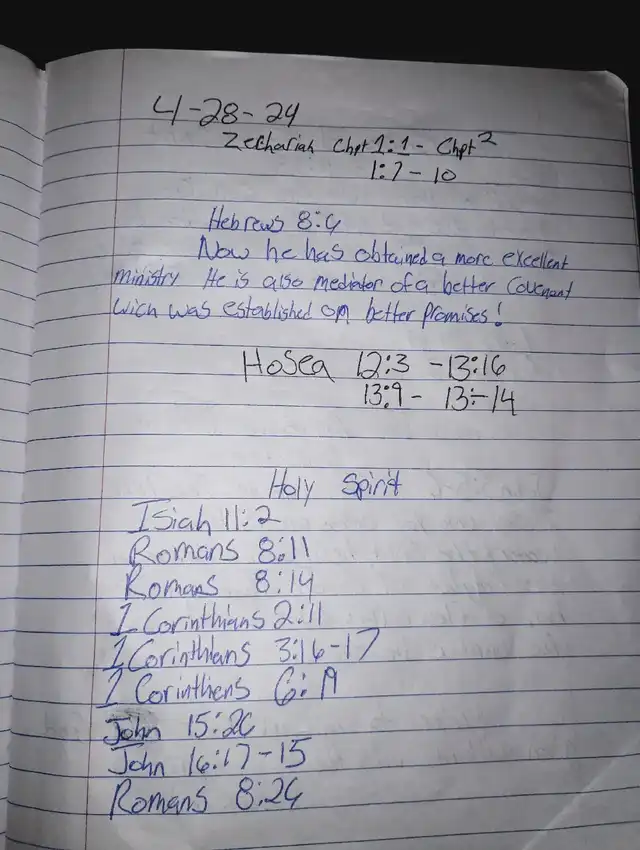 4-28-24
Zechariah Chpt 1:1 - Chpt 2
1:7 - 10
Hebrews 8:6
Now he has obtained a more excellent
ministry He is also mediator of a better Covenant
wich was established on better promises!
Hosea 12:3 - 13:16
13:9 - 13:-14
Holy Spirit
Isiah 11:2
Romans 8:11
Romans 8:14
1 Corinthians 2:11
1 Corinthians 3:16-17
1 Corinthiens 6:19
John 15:26
John 16:17-15
Romans 8:26